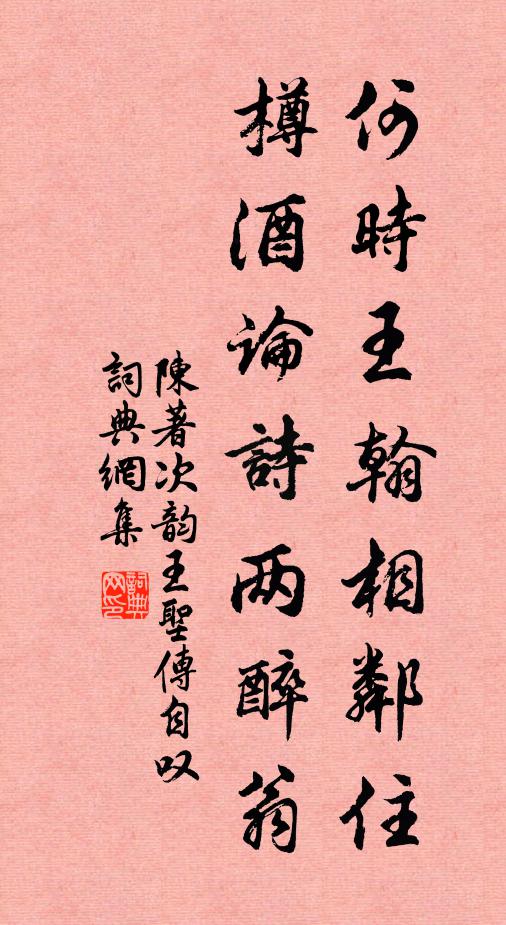 何時王翰相鄰住
樽酒論詩两醉翁
陳著次韵王聖傳自叹
詞典網集
詞典网印